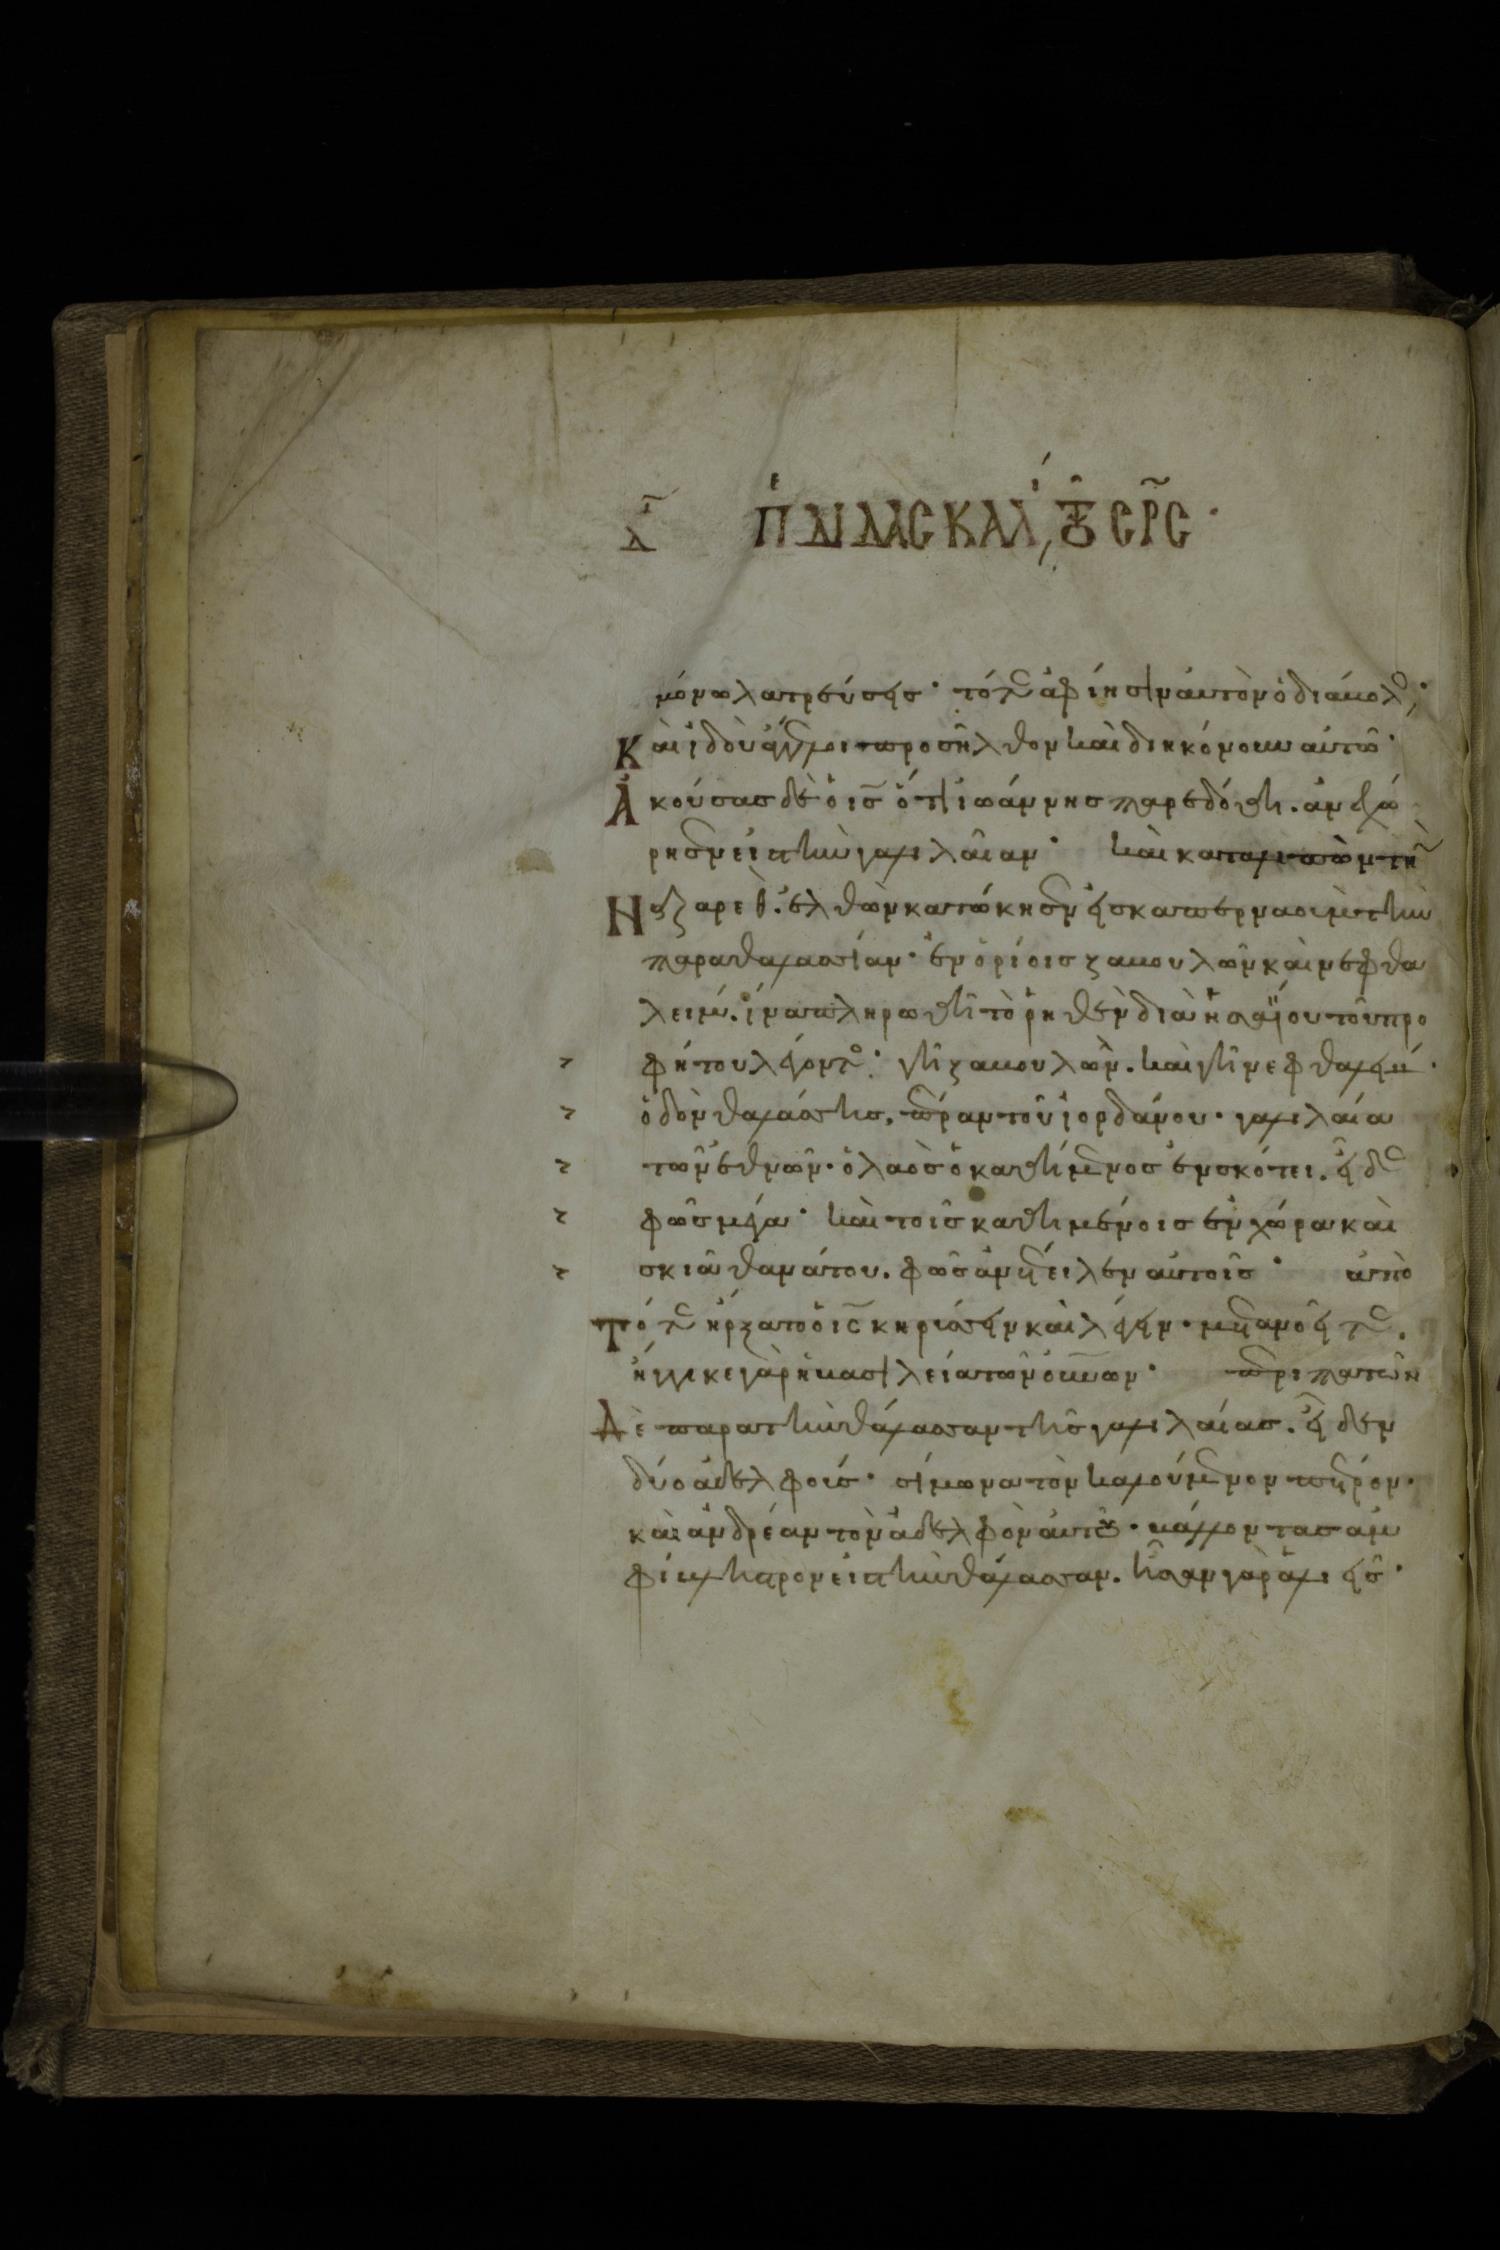 Δ Π ΔΙΔΑΣΚΑΛ, ΤΟΥ ΣΡΣ·
μόνω λατρεύσεις· τότε ἀφίησιν αὐτὸν ὁ διάβολος,·
Καὶ ἰδοὺ ἄγγελοι προσῆλθον καὶ διηκόνουν αὐτῶ·
Ἀκούσας δὲ ὁ ις ὅτι ἰωάννης παρεδόθη. ἀνεχώ
ρησεν εἰς τὴν γαλιλαίαν· καὶ καταλιπὼν τὴν
Ναζαρὲθ. ἐλθὼν κατώκησεν εἰς καπερναοὺμ τὴν
παραθαλασσίαν· ἐν ὁρίοις ζαβουλὼν καὶ νεφθα
λείμ. ἵνα πληρωθῆ τὸ ῥηθὲν διὰ ἡσαΐου τοῦ προ
φήτου λέγοντος· γῆ ζαβουλὼν. καὶ γῆ νεφθαλείμ·
ὁδὸν θαλάσσης. πέραν τοῦ ἰορδάνου. γαλιλαία
τῶν ἐθνῶν· ὁ λαὸς ὁ καθήμενος ἐν σκότει. εἶδε
φῶς μέγα· καὶ τοῖς καθημένοις ἐν χώρα καὶ
σκιᾶ θανάτου. φῶς ἀνέτειλεν αὐτοῖς· ἀπὸ
Τότε ἤρξατο ὁ ις κηρύσσειν καὶ λέγειν· μετανοεῖτε.
ἤγγικε γὰρ ἡ βασιλεία τῶν οὐνων· περιπατῶν
Δὲ παρὰ τὴν θάλασσαν τῆς γαλιλαίας. εἶδεν
δύο ἀδελφούς· σίμωνα τὸν καλούμενον πέτρον.
καὶ ἀνδρέαν τὸν ἀδελφὸν αὐτοῦ· βάλλοντας ἀμ
φίβληστρον εἰς τὴν θάλασσαν. ἦσαν γὰρ ἁλιεῖς·